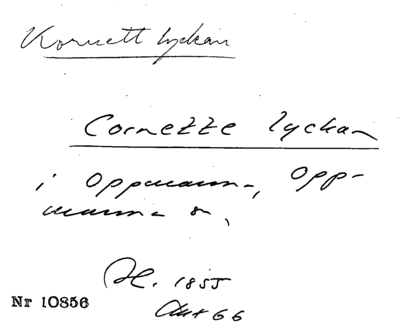 Kornett lyckan
Cornette lyckan
i Oppmanna, Opp-
manna sn,
Nr 10856
1855
Akt 66